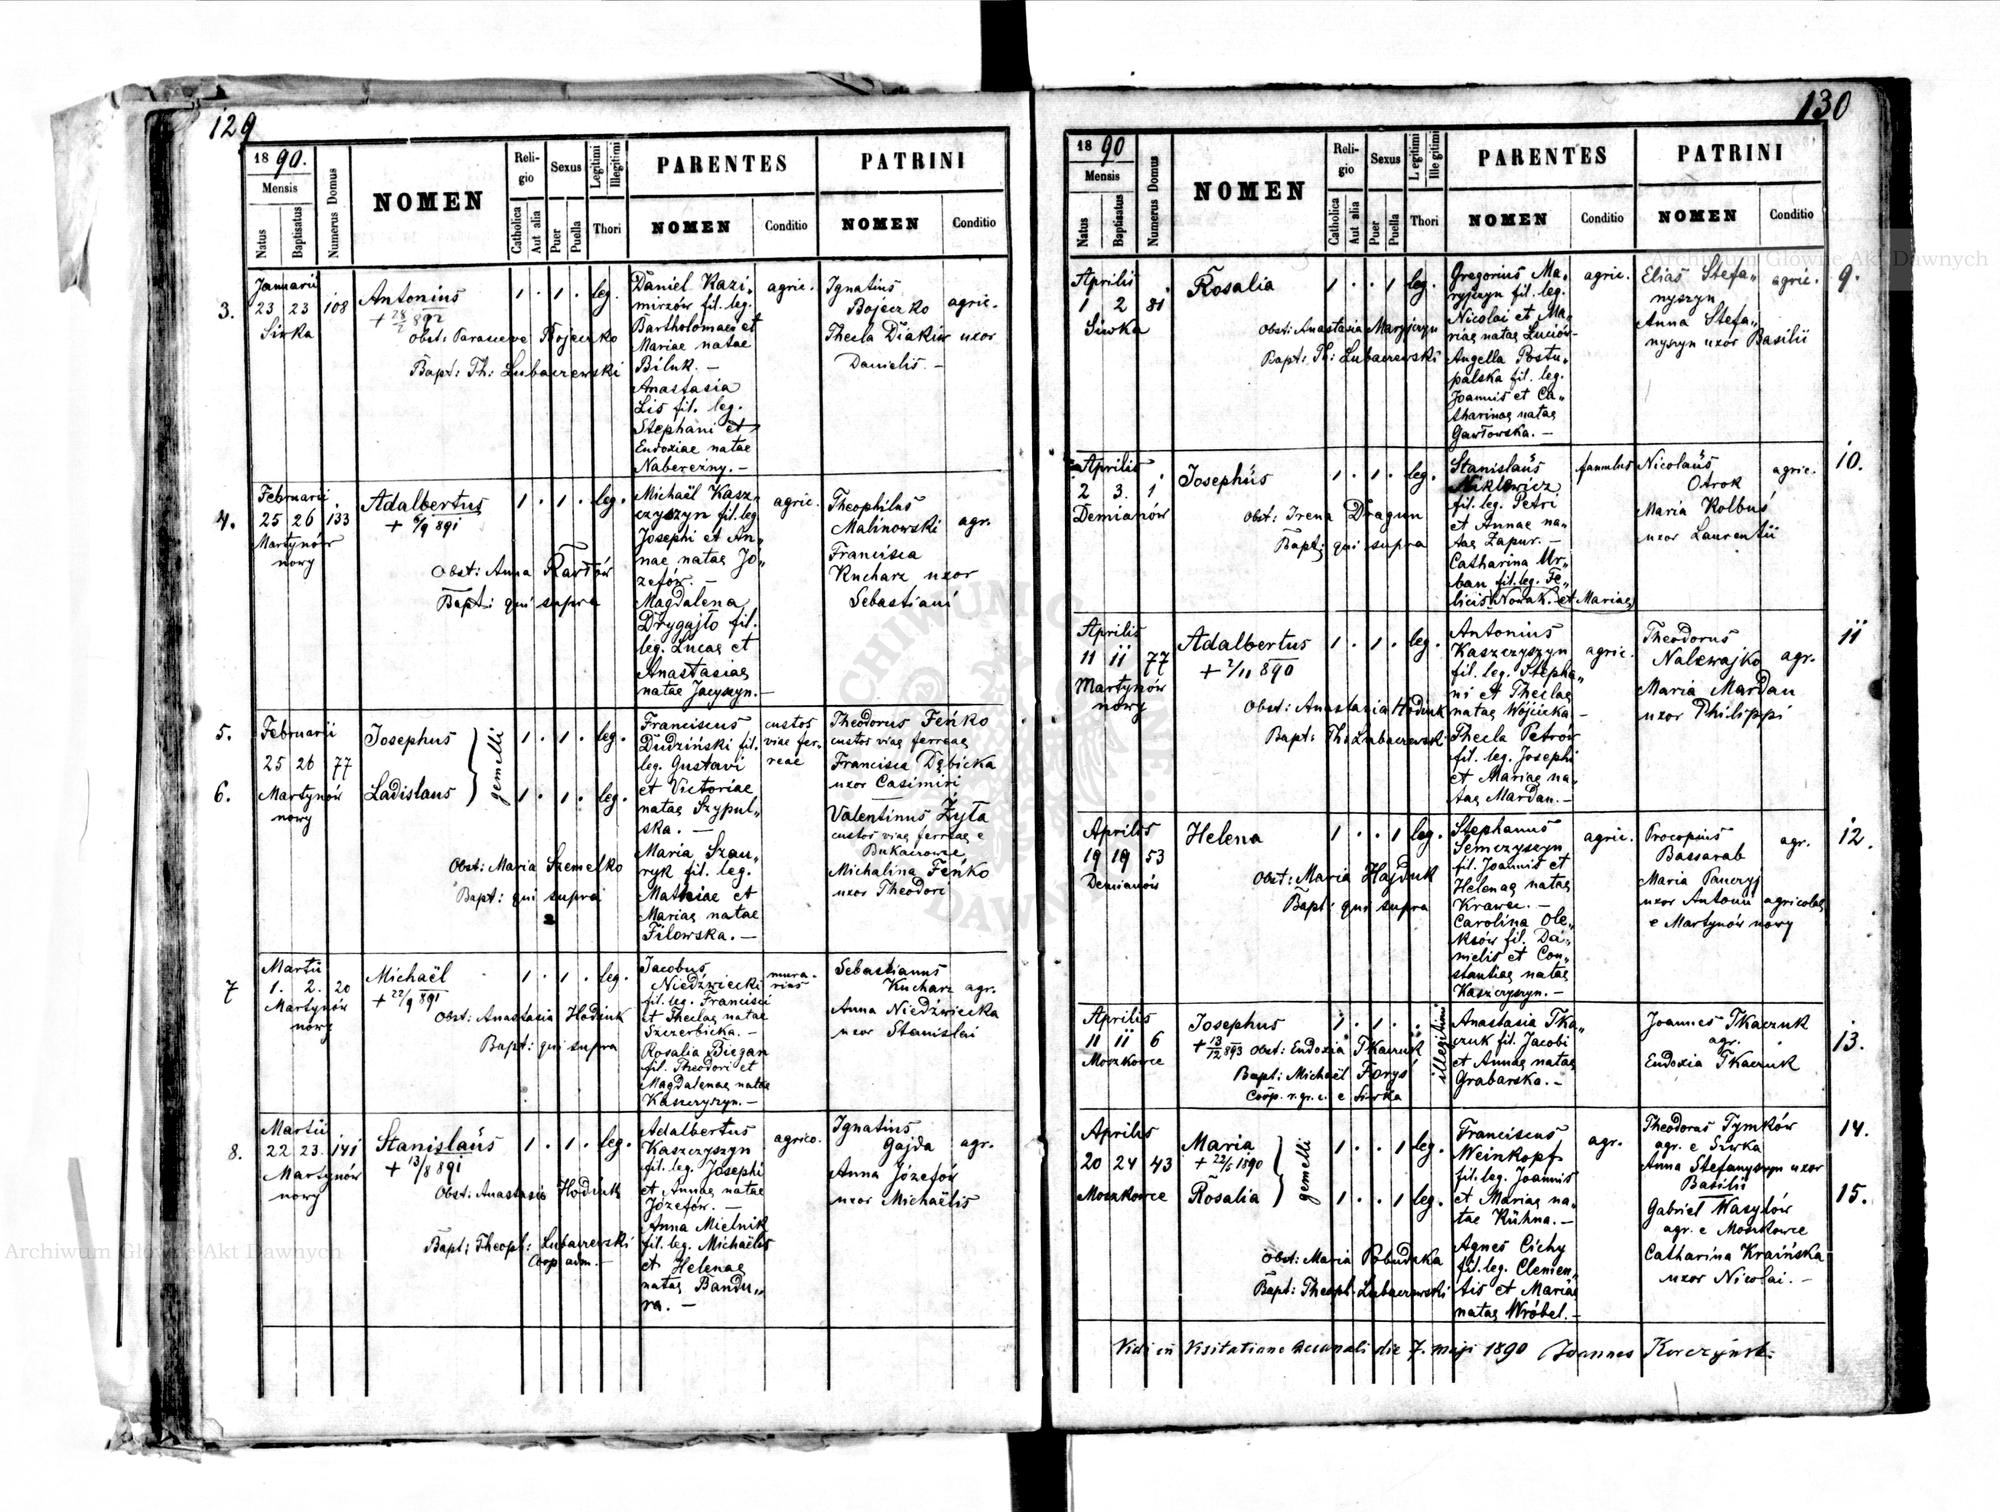 129
1890.
Mensis
Natus
Baptisatus
Numerus Domus
NOMEN
Religio
Catholica
Aut alia
Sexus
Puer
Puella
Legitimi
Illegitimi
Thori
PARENTES
NOMEN
Conditio
PATRINI
NOMEN
Conditio
3.
Januarii
23 23 108
Siwka
Antonius
+ 28/2 892
Obst: Parasceve Bojeczko
Bapt: Th: Lubaczewski
1 . 1 . leg.
Daniel Kazi-
mirzów fil. leg.
Bartholomaei et
Mariae natae
Biluk. —
Anastasia
Lis fil. leg.
Stephani et
Eudoxiae natae
Nabereżny. —
agric.
Ignatius
Bojeczko agric.
Thecla Diaków uxor
Danielis. —
4.
Februarii
25 26 133
Martynów
nowy
Adalbertus
+ 6/9 891
Obst: Anna Karłów
Bapt: qui supra
1 . 1 . leg.
Michaël Kasz-
czyszyn fil. leg.
Josephi et An-
nae natae Jó-
zefów. —
Magdalena
Drygajło fil.
leg. Lucae et
Anastasiae
natae Jacyszyn. —
agric.
Theophilus
Malinowski agr.
Francisca
Kucharz uxor
Sebastiani
5.
6.
Februarii
25 26 77
Martynów
nowy
Josephus
Ladislaus
gemelli
Obst: Maria Szemelko
Bapt: qui supra
1 . 1 . leg.
1 . 1 . leg.
Franciscus
Dudziński fil.
leg. Gustavi
et Victoriae
natae Szypul-
ska. —
Maria Szau-
ryk fil. leg.
Mathiae et
Mariae natae
Filowska. —
custos
viae fer-
reae
Theodorus Feńko
custos viae ferreae
Francisca Dębicka
uxor Casimiri
Valentinus Żyła
custos viae ferreae e
Bukaczowce
Michalina Feńko
uxor Theodori
7
Martii
1. 2. 20
Martynów
nowy
Michaël
+ 22/9 891
Obst: Anastasia Hodiuk
Bapt: qui supra
1 . 1 . leg.
Jacobus
Niedźwiecki
fil. leg. Francisci
et Theclae natae
Szczerbicka. —
Rosalia Biegan
fil. Theodori et
Magdalenae natae
Kaszczyszyn. —
mura-
rius
Sebastianus
Kucharz agr.
Anna Niedźwiecka
uxor Stanislai
8.
Martii
22 23. 141
Martynów
nowy
Stanislaüs
+ 13/8 891
Obst: Anastasia Hodiuk
Bapt: Theoph: Lubaczewski
Coop. adm. —
1 . 1 . leg.
Adalbertus
Kaszczyszyn
fil. leg. Josephi
et Annae natae
Józefów. —
Anna Mielnik
fil. leg. Michaëlis
et Helenae
natae Bandu-
ra. —
agrico.
Ignatius
Gajda agr.
Anna Józefów
uxor Michaëlis
130
1890
Mensis
Natus
Baptisatus
Numerus Domus
NOMEN
Religio
Catholica
Aut alia
Sexus
Puer
Puella
Legitimi
Illegitimi
Thori
PARENTES
NOMEN
Conditio
PATRINI
NOMEN
Conditio
Aprilis
1 2 81
Siwka
Rosalia
Obst: Anastasia Maryjczyn
Bapt: Th: Lubaczewski
1 . . 1 leg.
Gregorius Ma-
ryjczyn fil. leg.
Nicolai et Ma-
riae natae Luciów —
Angella Postu-
palska fil. leg.
Joannis et Ca-
tharinae natae
Gawłowska. —
agric.
Elias Stefa-
nyszyn agric.
Anna Stefa-
nyszyn uxor Basilii
9.
Aprilis
2 3. 1
Demianów
Josephüs
Obst: Irena Dragun
Bapt: qui supra
1 . 1 . leg.
Stanislaüs
Niklewicz
fil. leg. Petri
et Annae na-
tae Zapur. —
Catharina Ur-
ban fil. leg. Fe-
licis Nowak. et Mariae
famulus
Nicolaüs
Otrok agric.
Maria Kolbuś
uxor Laurentii
10.
Aprilis
11 11 77
Martynów
nowy
Adalbertus
+ 2/11 890
Obst: Anastasia Hodiuk
Bapt: Th: Lubaczewski
1 . 1 . leg.
Antonius
Kaszczyszyn
fil. leg. Stepha-
ni et Theclae
natae Wójcicka —
Thecla Petrów
fil. leg. Josephi
et Mariae na-
tae Mardan. —
agric.
Theodorus
Nalewajko agr.
Maria Mardan
uxor Philippi
11
Aprilis
19 19 53
Demianów
Helena
Obst: Maria Hajduk
Bapt: qui supra
1 . . 1 leg.
Stephanus
Semczyszyn
fil. Joannis et
Helenae natae
Krawec. —
Carolina Ole-
ksów fil. Da-
nielis et Con-
stantiae natae
Kaszczyszyn. —
agric.
Procopius
Bassarab agr.
Maria
uxor Antonii agricolae
e Martynów nowy
12.
Aprilis
11 11 6
Moszkowce
Josephus
+ 13/12 893 Obst: Eudoxia Tkaczuk
Bapt: Michaël Foryś
Coop. r. gr. c. e Siwka
1 . 1 .
illegitimi
Anastasia Tka-
czuk fil. Jacobi
et Annae natae
Grabarska. —
Joannes Tkaczuk
agr.
Eudoxia Tkaczuk
13.
Aprilis
20 24 43
Moszkowce
Maria
+ 22/5 1890
Rosalia
gemelli
Obst: Maria Pobudzka
Bapt: Theoph. Lubaczewski
1 . . 1 leg.
1 . . 1 leg.
Franciscus
Weinkopf
fil. leg. Joannis
et Mariae na-
tae Kühna. —
Agnes Cichy
fil. leg. Clemen-
tis et Mariae
natae Wróbel. —
agr.
Theodorus Tymków
agr. e Siwka
Anna Stefanyszyn uxor
Basilii
Gabriel Wasylów
agr. e Moszkowce
Catharina Kraińska
uxor Nicolai. —
14.
15.
Vidi in Visitatione decanali die 7. maji 1890 Joannes Korczyński
Archiwum Główne Akt Dawnych
Archiwum Główne Akt Dawnych